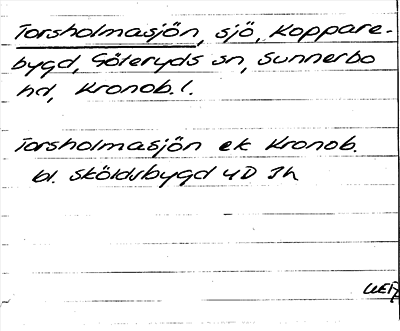 Torsholmasjön, sjö, Koppare-
bygd, Göteryds sn, Sunnerbo
hd, Kronob. l.
Torsholmasjön ek Kronob.
bl. Sköldsbygd 4D Jh